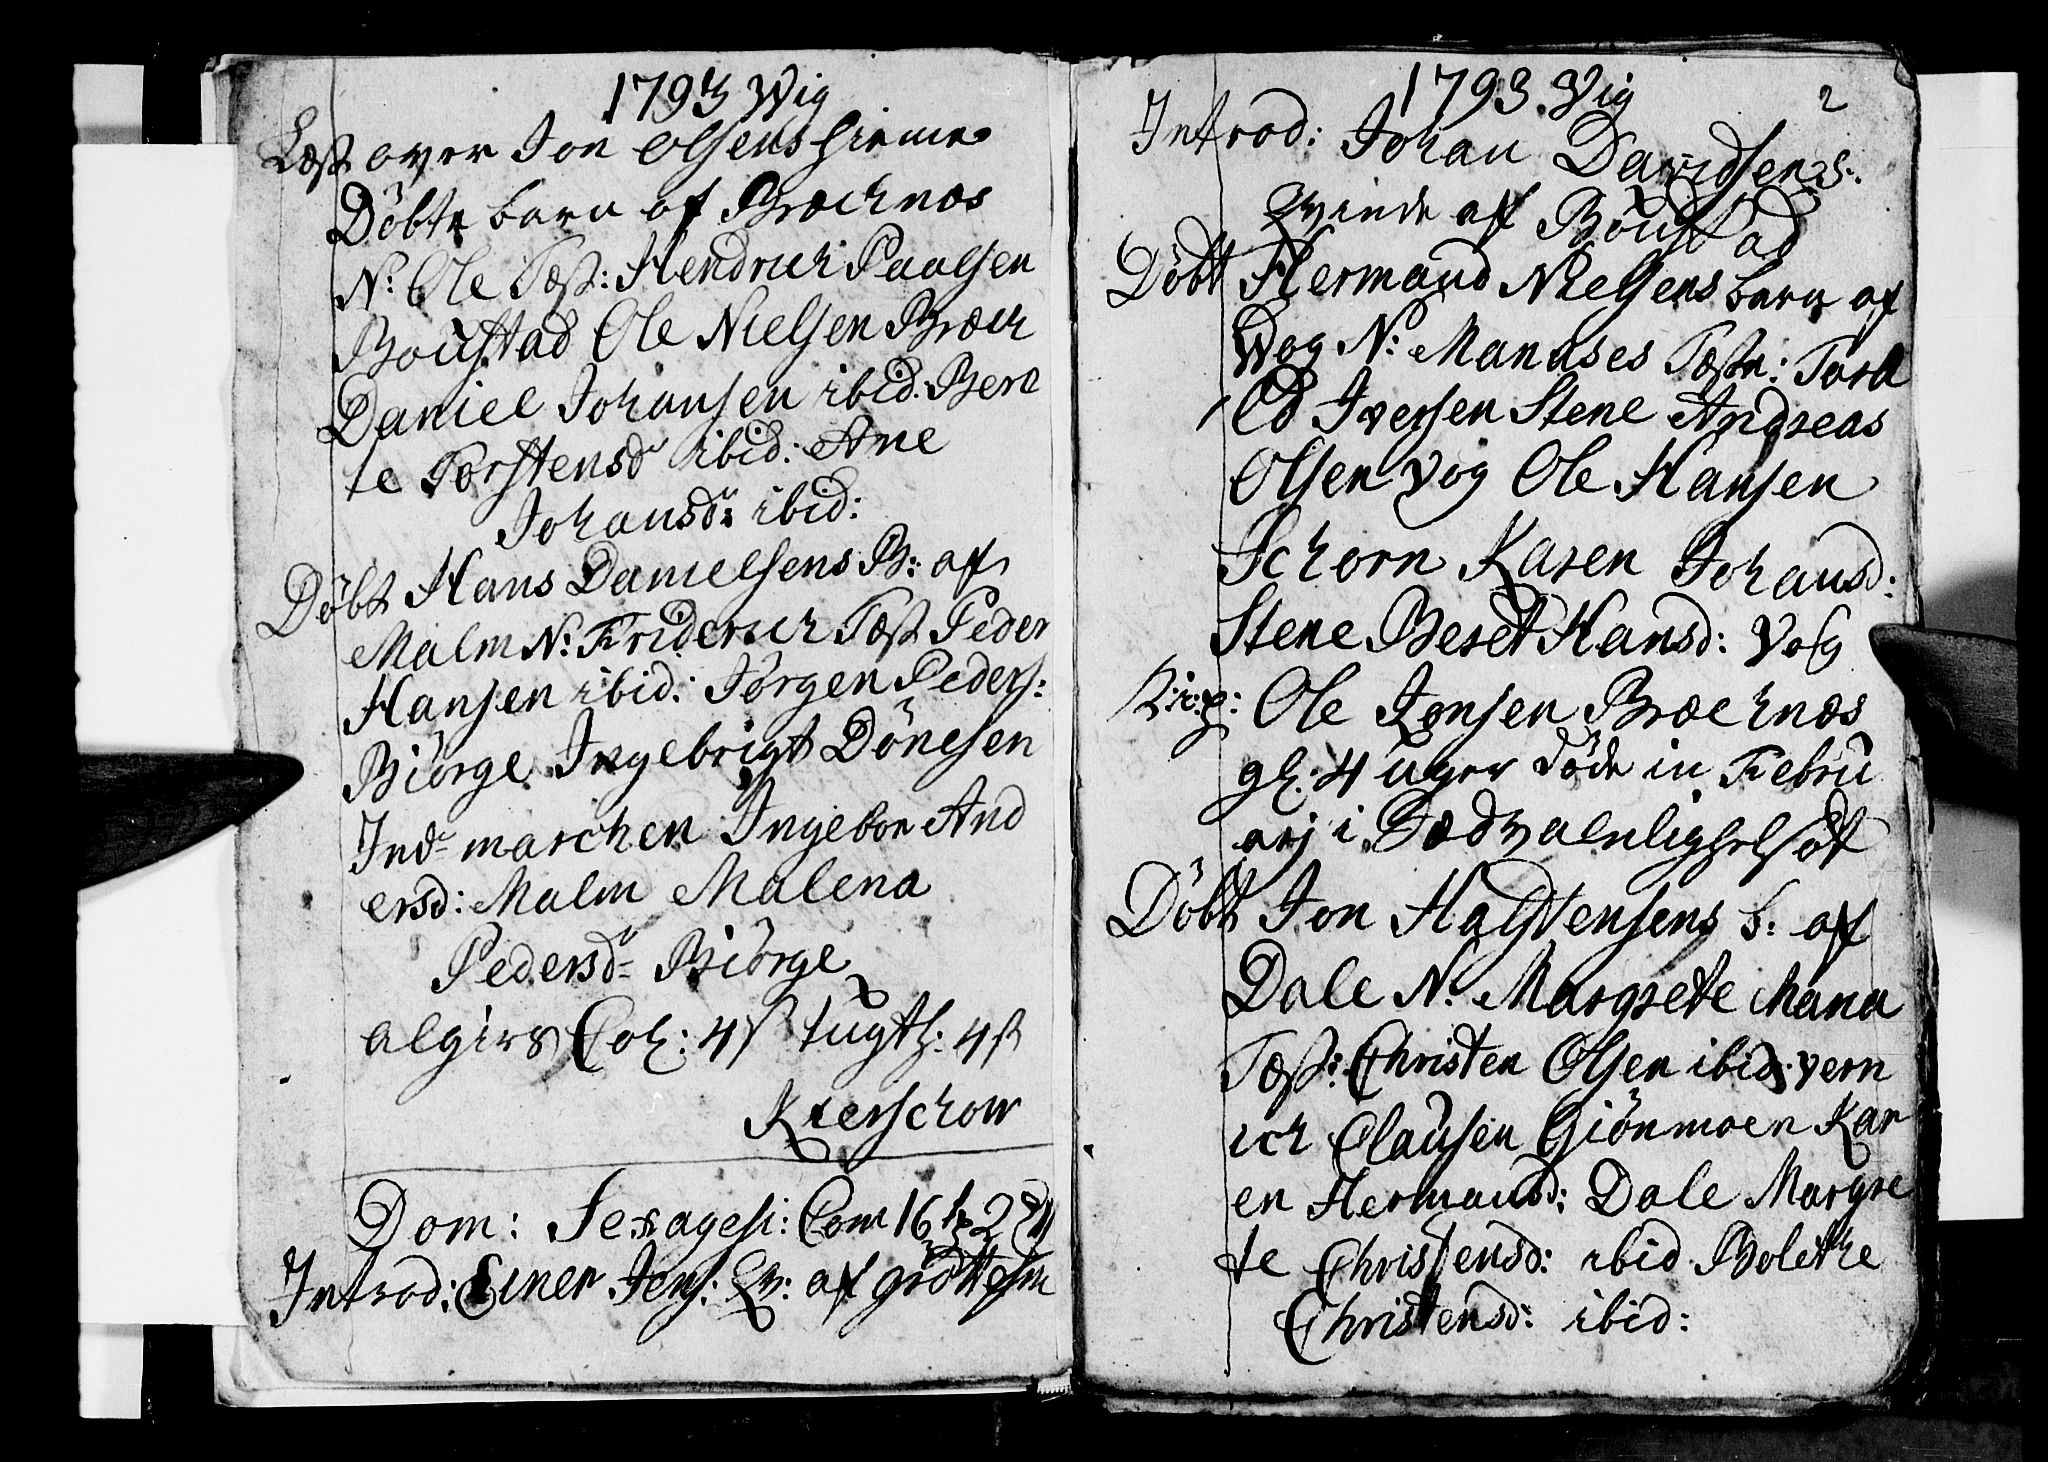 1793 Wig
Læst over Jon Olsens hieme
Döbte barn af Bræchnæs
N: Ole Test: Hendrich Paalsen
Boustad Ole Nielsen Bræch
Daniel Johansen ibid. Beret
te Torstensdr ibid: Ane
Johansdr: ibid:
Döbt Hans Danielsens B: af
Malm N: Friderich Test Peder
Hansen ibid: Jörgen Peders:
Biörge Ingebrigt Dönesen
Ind- marchen Ingebor And
ersd: Malm Malena
Pedersdr Biörge
algirs Coh: 4 ß tugth: 4 ß
Kierschow
Dom: Sexagesi: Com 16
Introd: Einer Jens: Qv: af
1793. Vig
2
Introd: Johan Davidsens:
Qvinde af Boustad
Döbt Hermand Nielsens barn af
Vog N: Manases Teste: Tora
ld Iversen Stene Andreas
Olsen Vog Ole Hansen
Schorn Karen Johansd:
Stene Beret Hansd: Vog
R:i:p: Ole Jonsen Bræchnæs
gl: 4 uger döde in Febru
arj i
Döbt Jon Halstensens b: af
Dale N: Margrete Mana
Test: Christen Olsen ibid: vern
ich Clausen Giönmoen Kar
en Hermansd: Dale Margre
te Christensd: ibid Bolethe
Christensd: ibid: